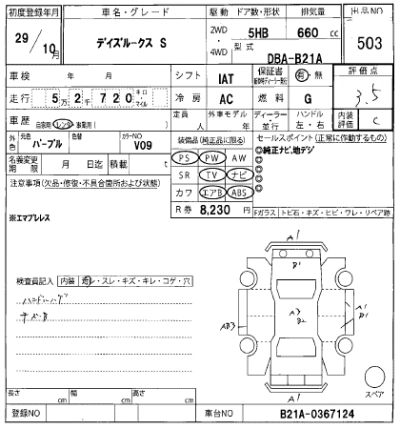 初度登録年月 車名・グレード 駆動 ドア数・形状 排気量 出品NO
29/10月 デイズルークス S 2WD・4WD 5HB 660 cc 503
型式 DBA-B21A
車検 年 月 シフト IAT 保証書 有・無 評価点
走行 5万2千720 キロ・マイル 冷房 AC 燃料 G 3.5
車歴 自家用 レンタ 事業用( ) 定員 人 外車モデル 年 ディーラー・並行 ハンドル 左・右 内装評価 C
外色 元色 パープル 色替 カラーNO V09 装備品(純正品に限る) セールスポイント(正常に作動するもの)
◎純正ナビ,地デジ
◎
◎
◎
名義変更期限 月 日迄 積載 t PS PW AW
注意事項(欠品・修復・不具合箇所および状態) SR TV ナビ
カワ エアB ABS
R券 8,230 円
※エマブレス
Fガラス トビ石・キズ・ヒビ・ワレ・リペア跡
検査員記入 内装 ・スレ・キズ・キレ・コゲ・穴
A1
B1
A3
B2
AB3
A1
P1
A1
スペア
長さ cm 幅 cm 高さ cm
登録NO 車台NO B21A-0367124